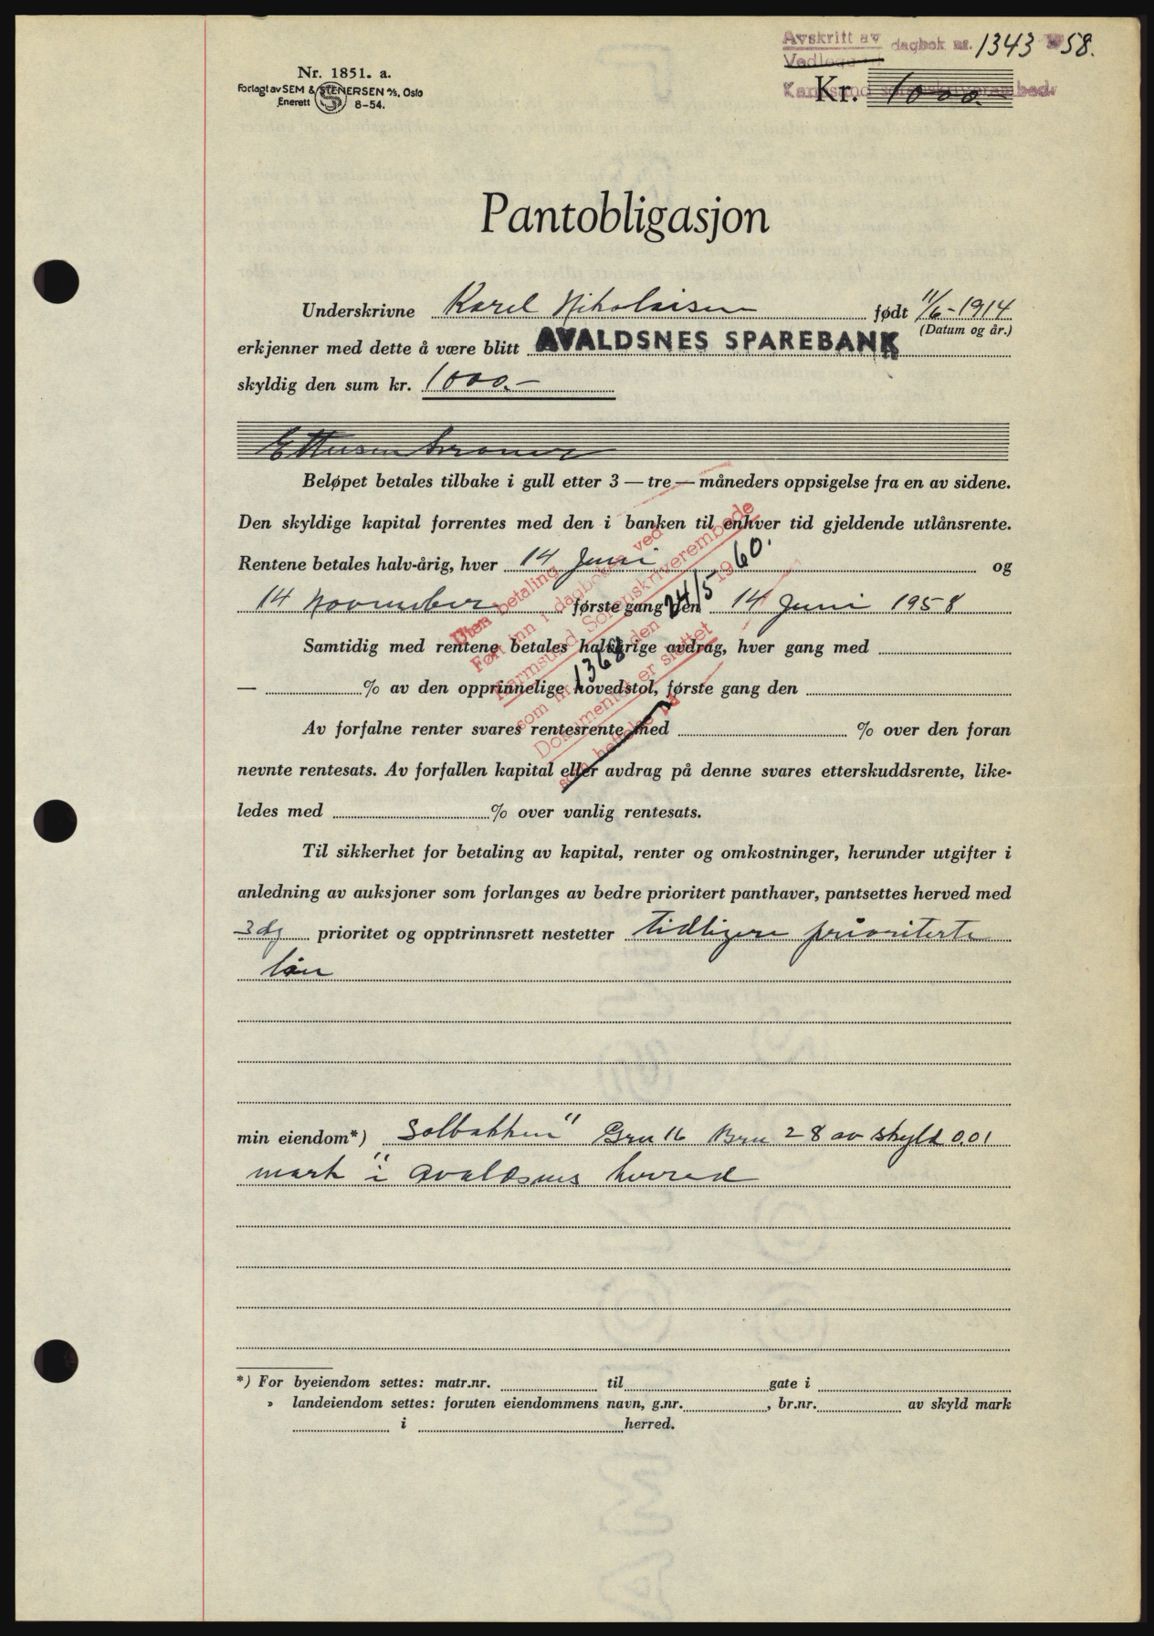 Avskrift av dagbok nr. 1343 1958.
Vedlegg
Karmsund sorenskriverembede
Nr. 1851. a.
Forlagt av SEM & STENERSEN A/S, Oslo
Enerett S 8-54.
Kr. 1000.-
Pantobligasjon
Underskrivne Karel Nikolaisen født 11/6-1914
(Datum og år.)
erkjenner med dette å være blitt AVALDSNES SPAREBANK
skyldig den sum kr. 1000.-
Ettusen kroner
Beløpet betales tilbake i gull etter 3 — tre — måneders oppsigelse fra en av sidene.
Den skyldige kapital forrentes med den i banken til enhver tid gjeldende utlånsrente.
Rentene betales halv-årig, hver 14 Juni og
14 November første gang den 14 Juni 1958
Samtidig med rentene betales halvårige avdrag, hver gang med
— % av den opprinnelige hovedstol, første gang den
Av forfalne renter svares rentesrente med % over den foran
nevnte rentesats. Av forfallen kapital eller avdrag på denne svares etterskuddsrente, like-
ledes med % over vanlig rentesats.
Uten betaling
Ført inn i dagboken ved
Karmsund Sorenskriverembede
som nr. 1368 den 24/5 1960.
Dokumentet er slettet
som heftelse på
Til sikkerhet for betaling av kapital, renter og omkostninger, herunder utgifter i
anledning av auksjoner som forlanges av bedre prioritert panthaver, pantsettes herved med
3dj prioritet og opptrinnsrett nestetter tidligere prioriterte
lån
min eiendom*) "Solbakken" Gnr 16 Bnr 28 av skyld 0.01
mark i Avaldsnes herred
*) For byeiendom settes: matr.nr. til gate i
» landeiendom settes: foruten eiendommens navn, g.nr. , br.nr. av skyld mark
i herred.